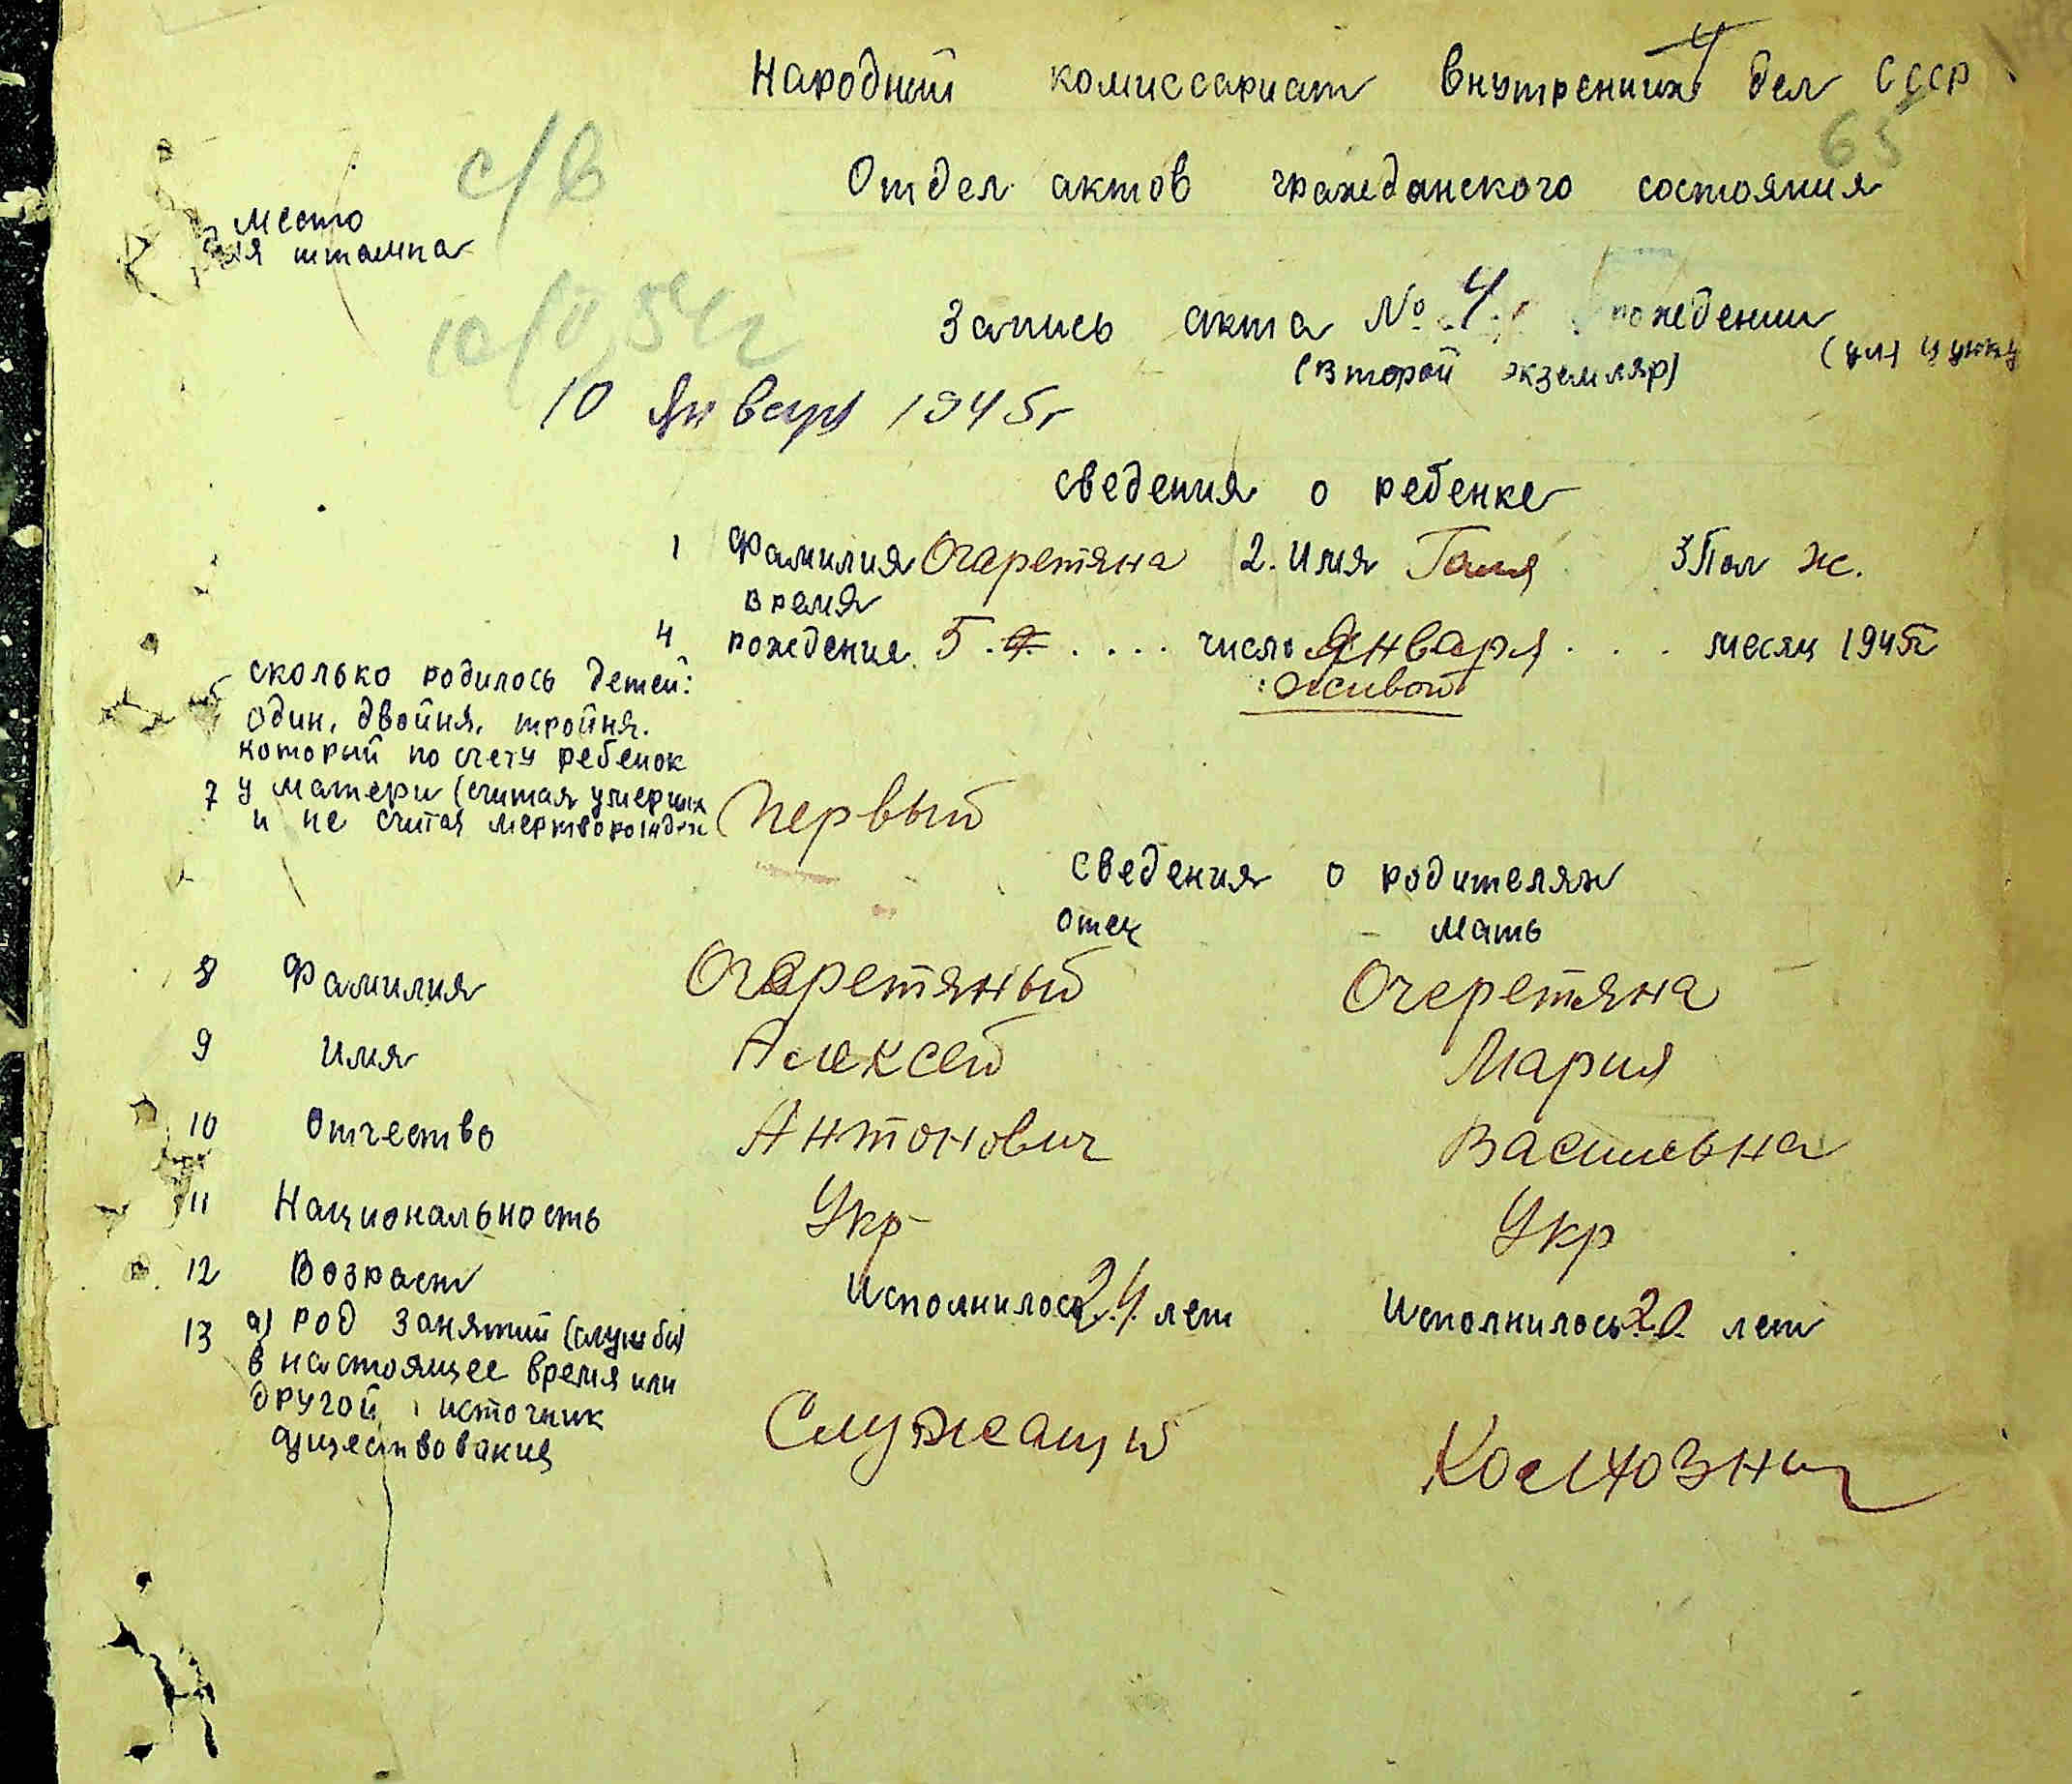 4
Народный комиссариат внутрених дел СССР
65
Отдел актов гражданского состояния
с/в
место
для штампа
Запись акта № 4 рождении
(второй экземляр)
10 Января 1945г
сведения о ребенке
1 Фамилия Очеретяна 2. Имя Галя 3 Пол ж.
время
4 рождения 5 . . . . число Января . . . месяц 1945г
живой
5 сколько родилось детей:
один, двойня, тройня.
который по счету ребенок
7 у матери (считая умерших
и не считая мертворожден Первый
сведения о родителях
отец мать
8 Фамилия Очеретяный Очеретяна
9 Имя Алексей Мария
10 Отчество Антонович Васильевна
11 Национальность Укр Укр
12 Возраст Исполнилось 24 лет Исполнилось 20 лет
13 а) род занятий (службы)
в настоящее время или
другой источник
существования Служащий Колхозниц